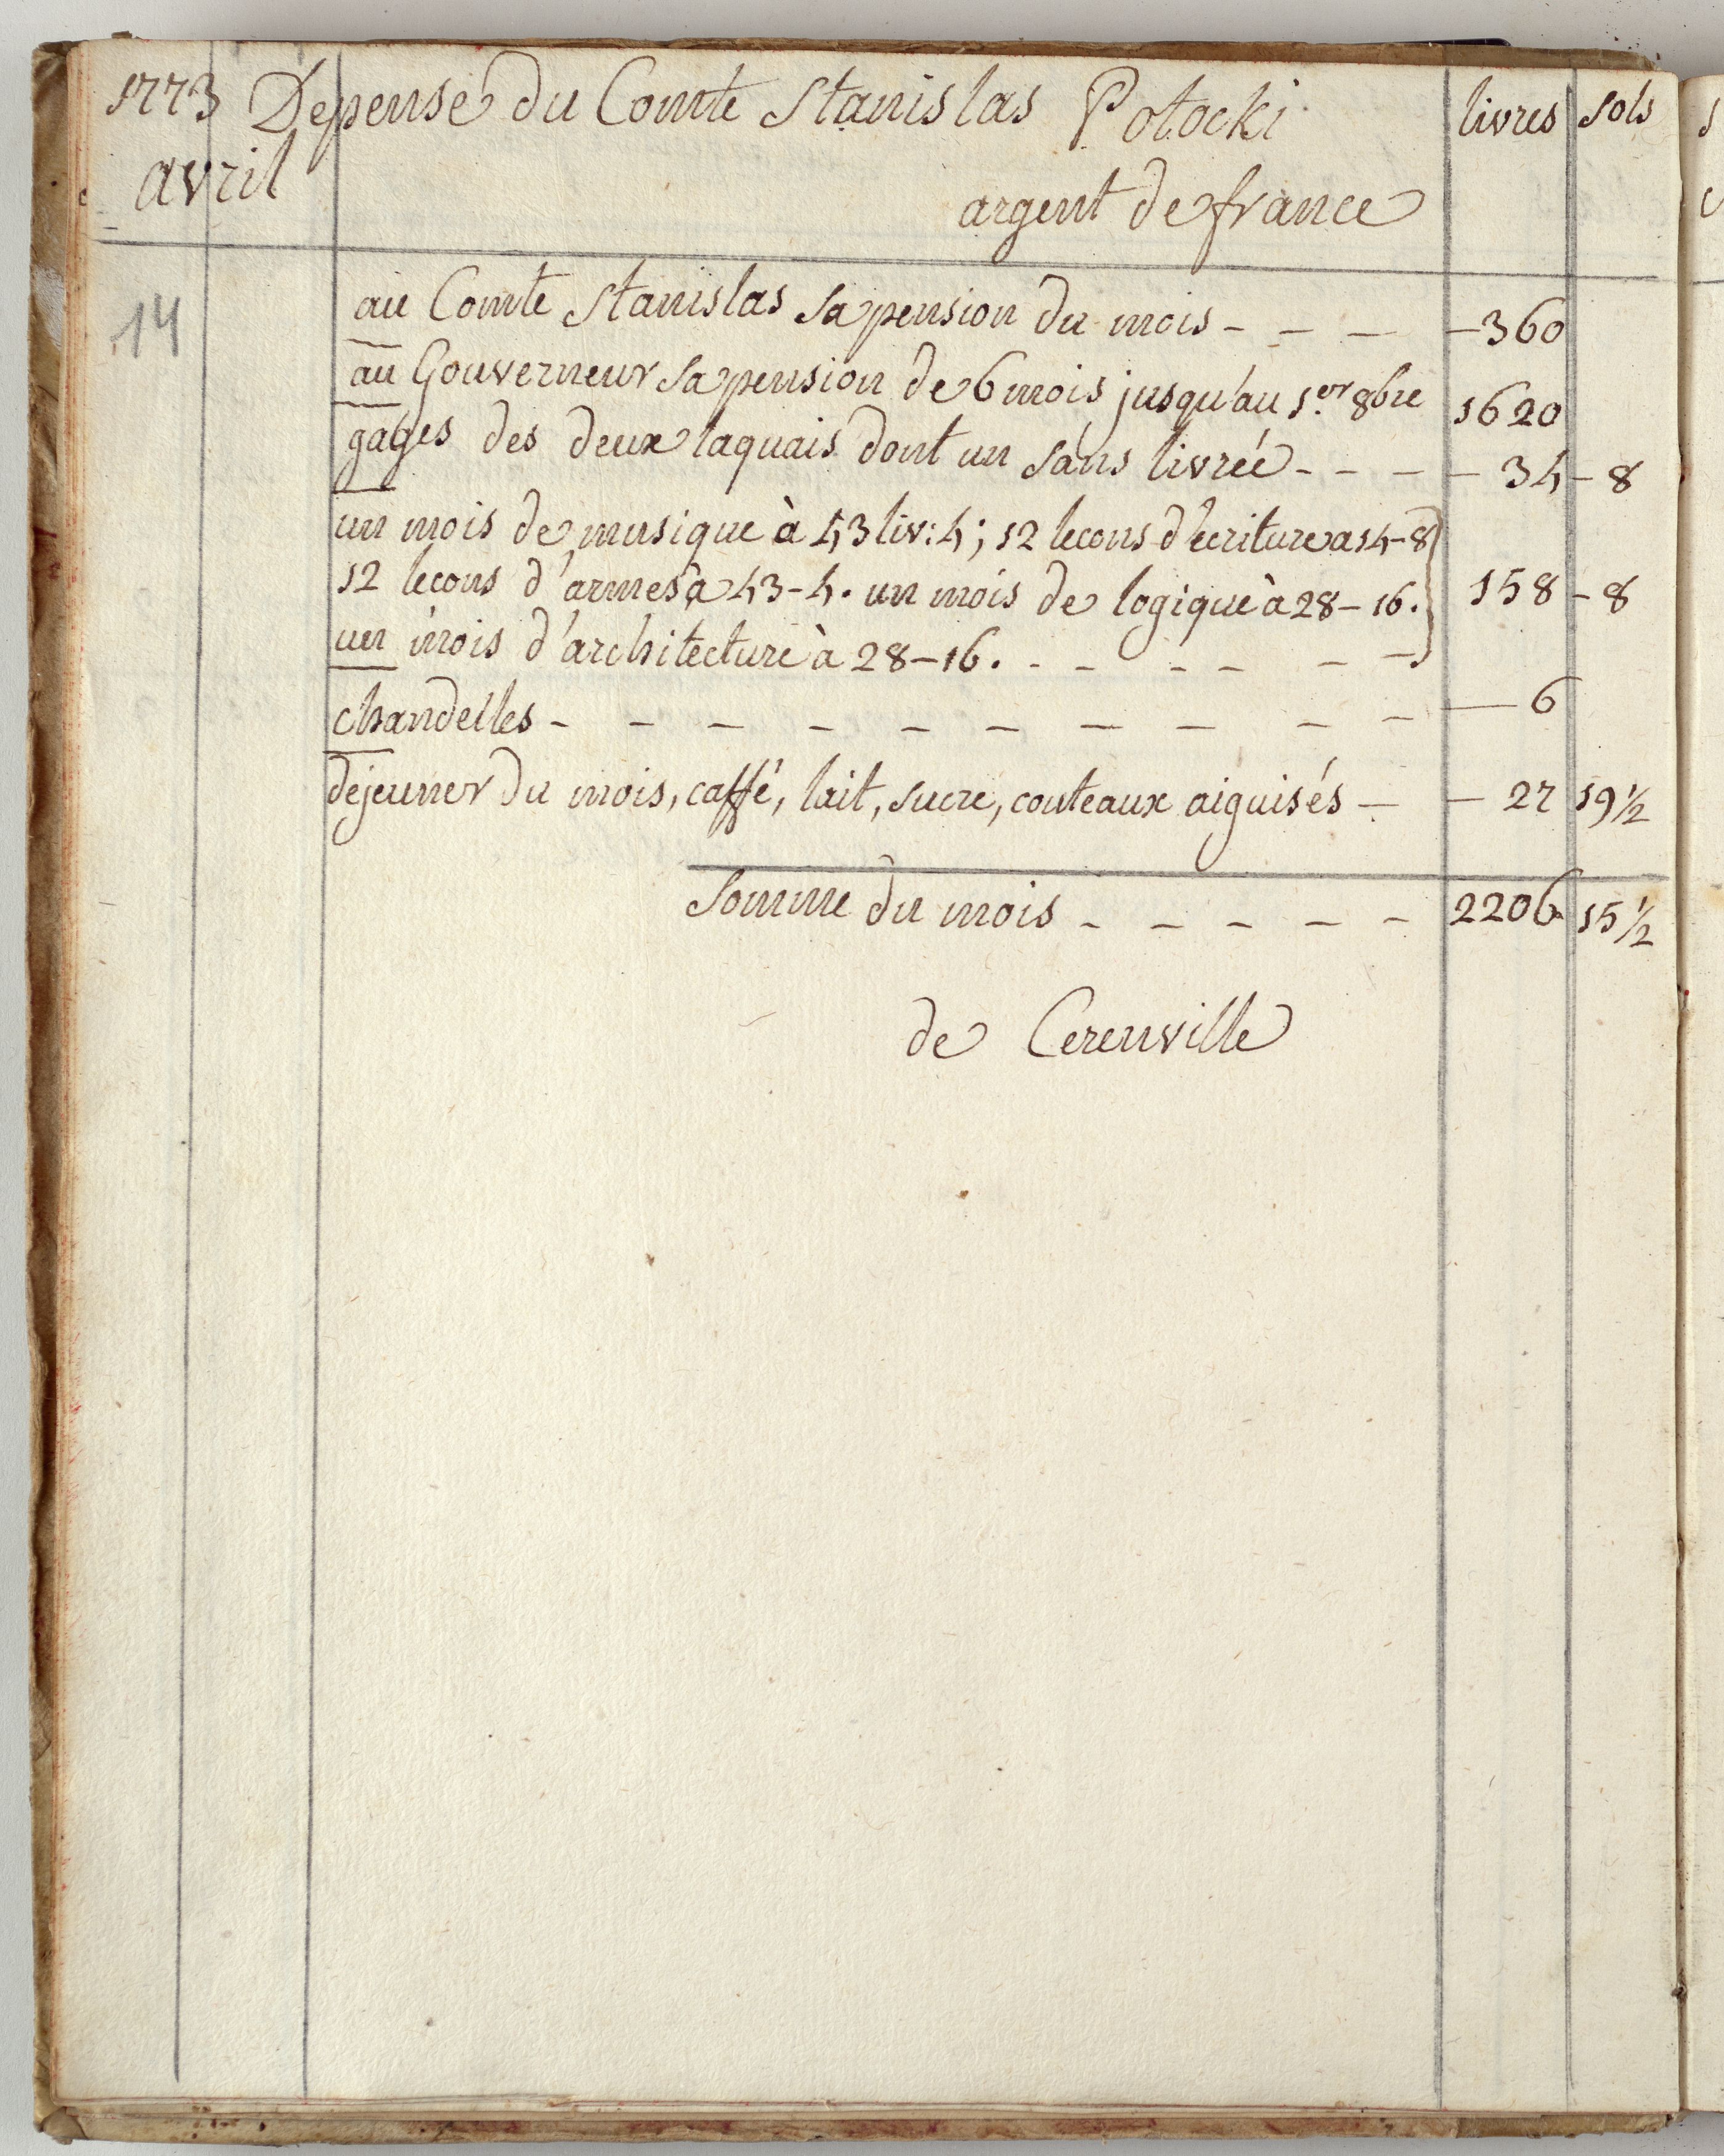 1773 Depense du Comte Stanislas Potocki livres sols
avril
argent de france
14
au Comte Stanislas sa pension du mois - - - - 360
au Gouverneur sa pension de 6 mois jusqu'au 1.er 8bre 1620
gages des deux laquais dont un sans livrée - - - - 34 - 8
un mois de musique à 43 liv: 4; 12 lecons d'ecriture a 14-8
12 lecons d'armes à 43-4. un mois de logique à 28-16. 158 - 8
un mois d'architecture à 28-16. - - - - - -
chandelles - - - - - - - - - - - 6
dejeuner du mois, caffé, lait, sucre, couteaux aiguisés - - 27 19 1/2
Somme du mois - - - - - 2206 15 1/2
de Cerenville